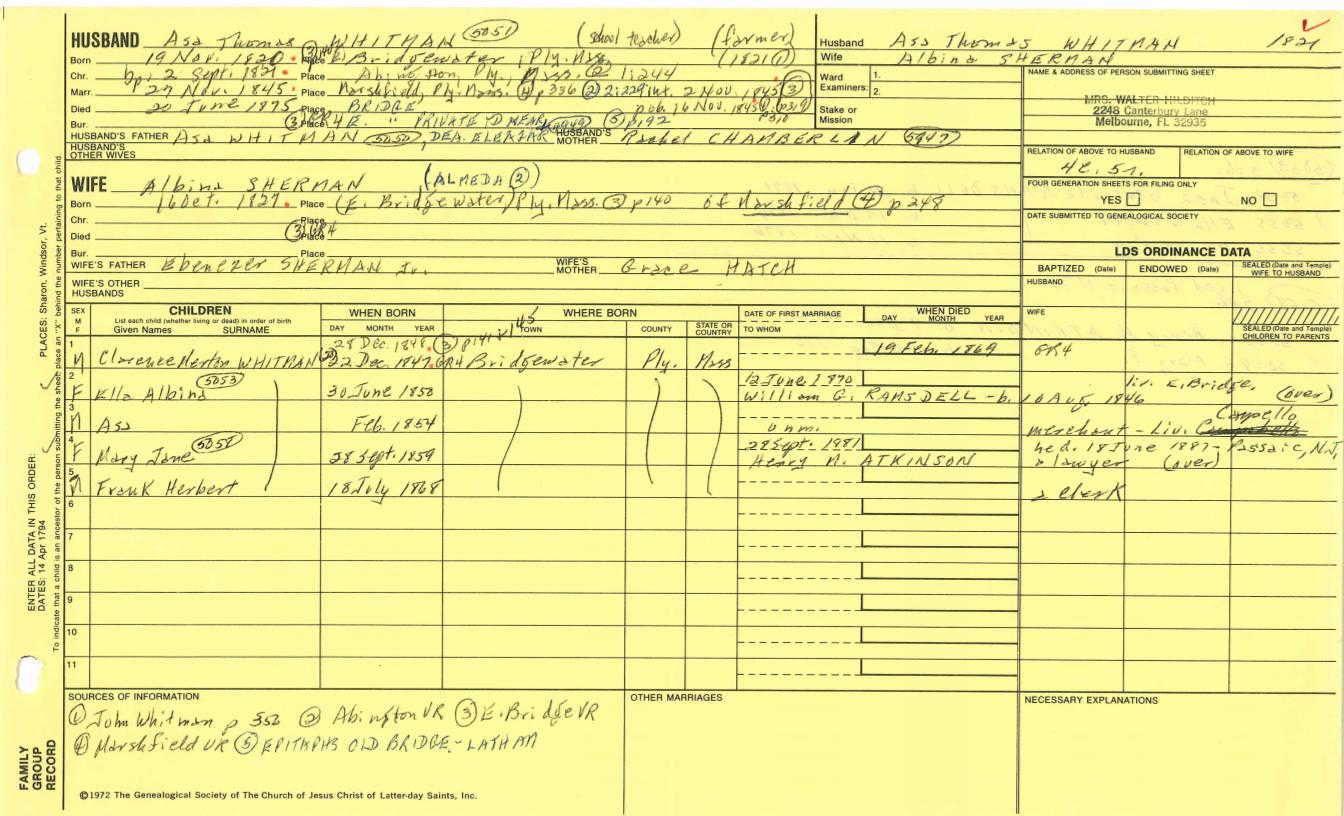 HUSBAND Asa Thomas WHITMAN 5051 (school teacher) (farmer)
Born 19 Nov. 1820 Place E. Bridgewater, Ply. Mass. (1821 ①)
Chr. bp. 2 Sept. 1821 Place Abington, Ply., Mass. ② 1:244
Marr. 27 Nov. 1845 Place Marshfield, Ply. Mass. ④ p336 ② 2:229 int. 2 Nov. 1845 ③
Died 20 June 1875 Place BRIDGE, pub. 16 Nov. 1845
Bur. PRIVATE YD NEAR ⑤ p192
HUSBAND'S FATHER Asa WHITMAN 5050, DEA. ELEAZAR HUSBAND'S MOTHER Rachel CHAMBERLAN 5947
HUSBAND'S OTHER WIVES
Husband Asa Thomas WHITMAN 1821
Wife Albina SHERMAN
Ward Examiners: 1.
2.
Stake or Mission
NAME & ADDRESS OF PERSON SUBMITTING SHEET
MRS. WALTER HILDITCH
2248 Canterbury Lane
Melbourne, FL 32935
RELATION OF ABOVE TO HUSBAND RELATION OF ABOVE TO WIFE
FOUR GENERATION SHEETS FOR FILING ONLY
YES NO
DATE SUBMITTED TO GENEALOGICAL SOCIETY
WIFE Albina SHERMAN (ALMEDA ②)
Born 1827 Place (E. Bridgewater) Ply. Mass. ③ p140 of Marshfield ④ p248
Chr. Place
Died Place ③ GR4
Bur. Place
WIFE'S FATHER Ebenezer SHERMAN Jr. WIFE'S MOTHER Grace HATCH
WIFE'S OTHER HUSBANDS
LDS ORDINANCE DATA
BAPTIZED (Date) ENDOWED (Date) SEALED (Date and Temple) WIFE TO HUSBAND
HUSBAND
WIFE
SEALED (Date and Temple) CHILDREN TO PARENTS
SEX M F CHILDREN List each child (whether living or dead) in order of birth Given Names SURNAME WHEN BORN DAY MONTH YEAR WHERE BORN TOWN COUNTY STATE OR COUNTRY DATE OF FIRST MARRIAGE TO WHOM WHEN DIED DAY MONTH YEAR
28 Dec. 1848 ③ p141 + 145
1 M Clarence Merton WHITMAN 22 Dec. 1847 GR4 Bridgewater Ply. Mass 19 Feb. 1869 GR4
2 F Ella Albina 5053 30 June 1850 12 June 1870 William G. RAMSDELL - b. 10 Aug. 1846 liv. E. Bridge, (over)
3 M Asa Feb. 1854 unm. merchant - Liv. Campello
4 F Mary Jane 5058 28 Sept. 1859 28 Sept. 1881 Henry M. ATKINSON he d. 18 June 1887 - Passaic, N.J.,
a lawyer (over)
5 M Frank Herbert 18 July 1868 a clerk
6
7
8
9
10
11
SOURCES OF INFORMATION
① John Whitman p 353 ② Abington VR ③ E. Bridge VR
④ Marshfield VR ⑤ EPITAPHS OLD BRIDGE. - LATHAM
OTHER MARRIAGES
NECESSARY EXPLANATIONS
©1972 The Genealogical Society of The Church of Jesus Christ of Latter-day Saints, Inc.
FAMILY GROUP RECORD
ENTER ALL DATA IN THIS ORDER:
DATES: 14 Apr 1794
PLACES: Sharon, Windsor, Vt.
To indicate that a child is an ancestor of the person submitting the sheet, place an "X" behind the number pertaining to that child.